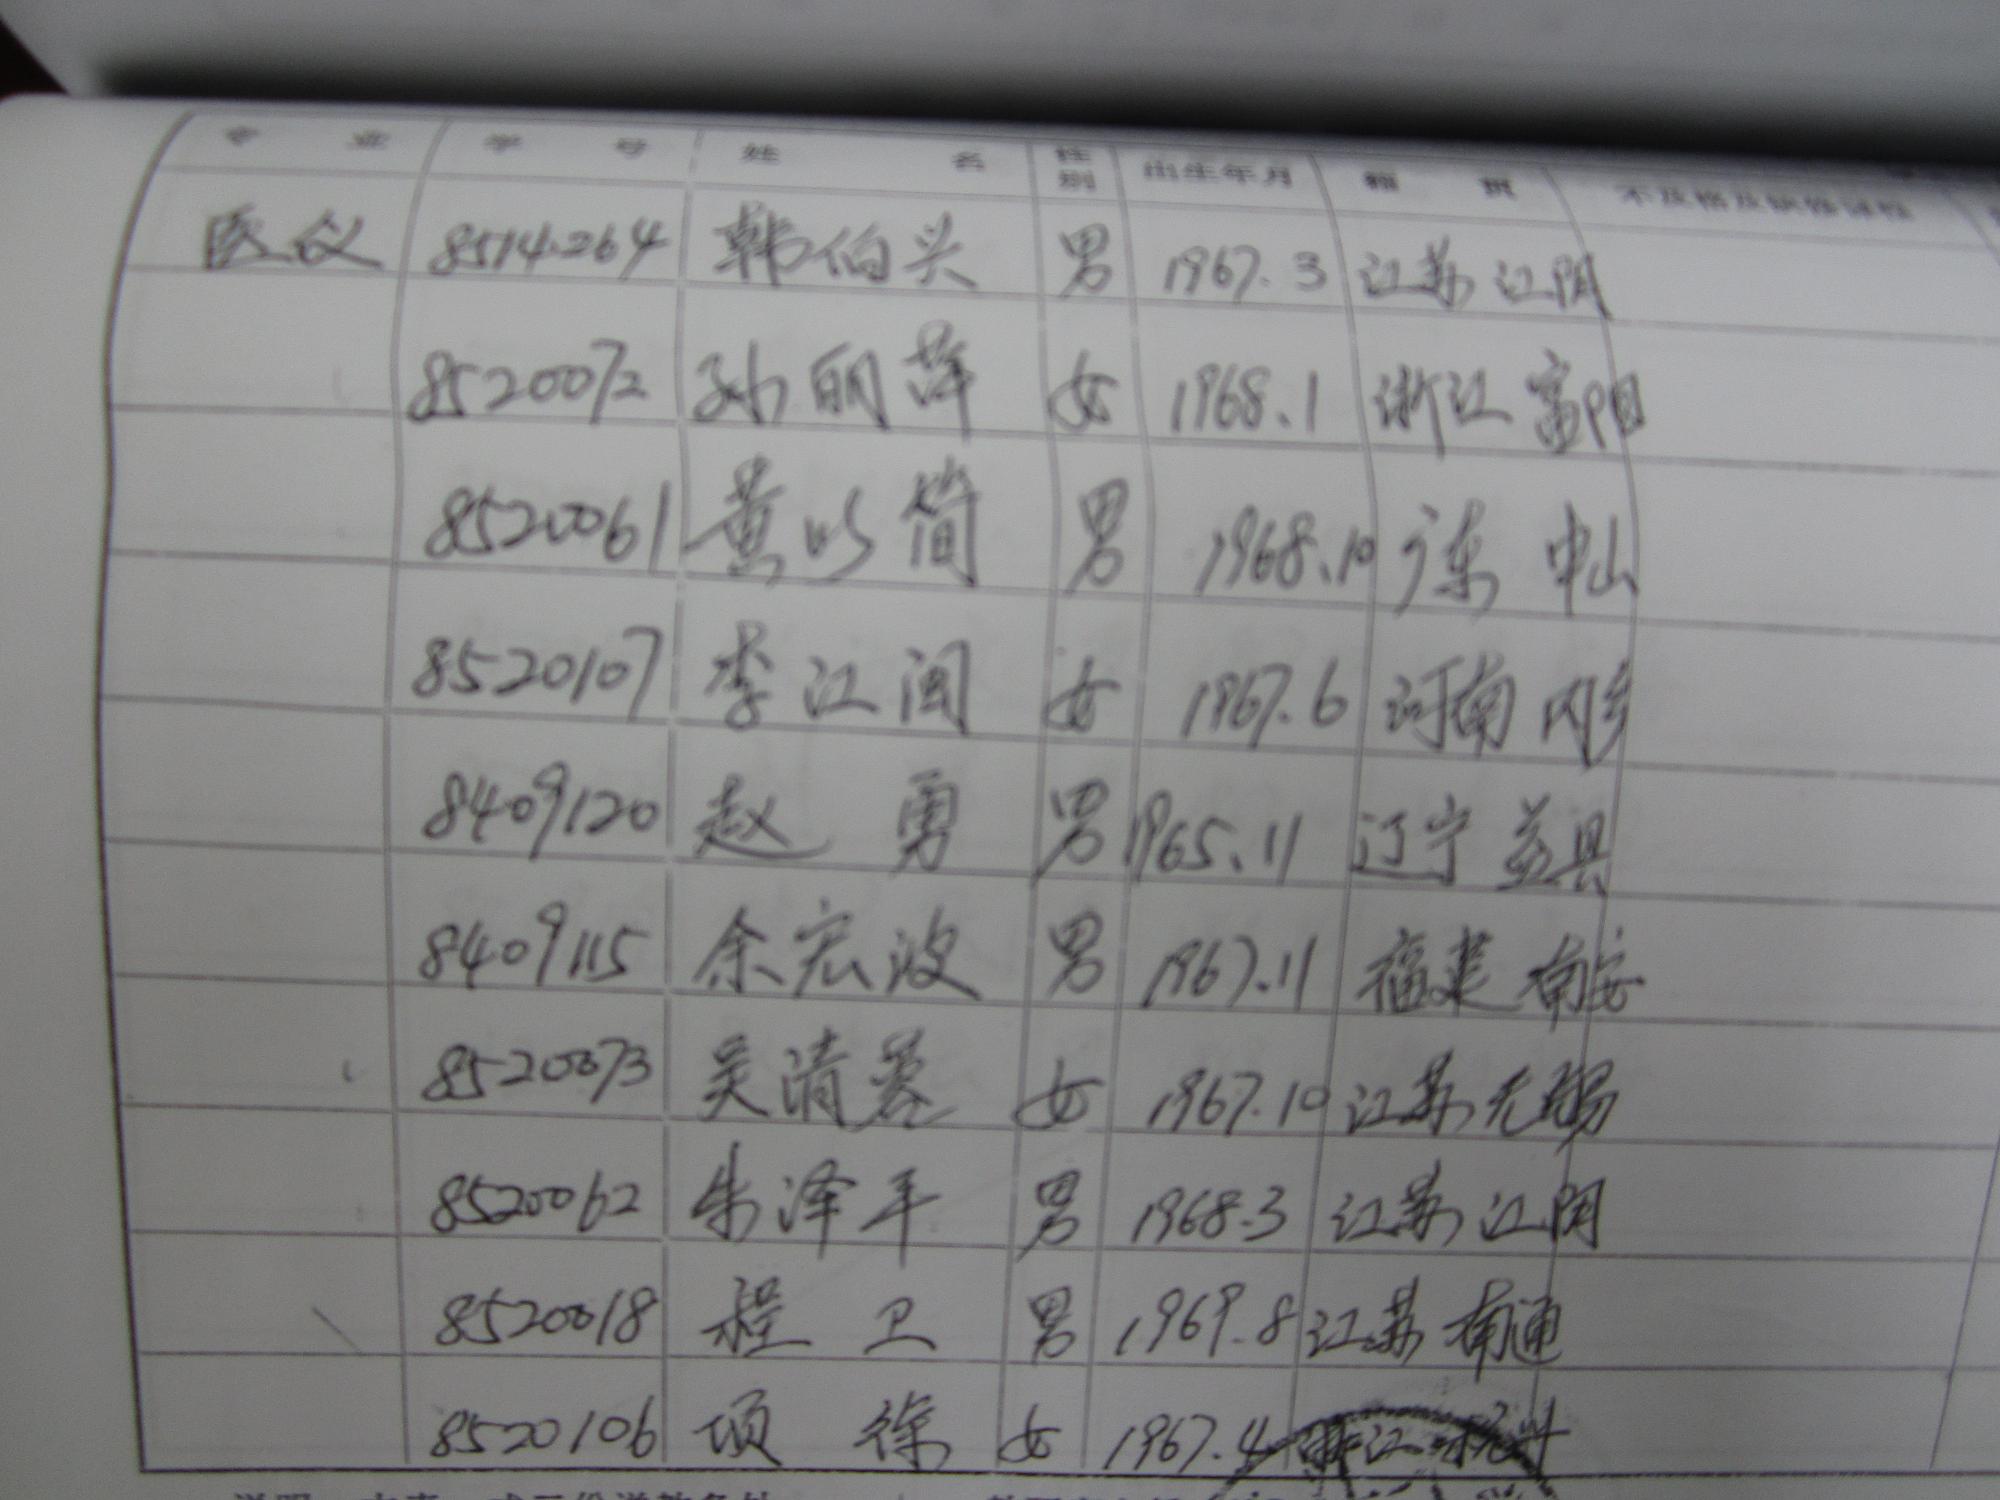 专 业 学 号 姓 名 性别 出生年月 籍 贯 不及格及缺修课程
医仪 8514264 韩伯兴 男 1967.3 江苏 江阴
8520072 孙丽萍 女 1968.1 浙江 富阳
8520061 黄以简 男 1968.10 广东 中山
8520107 李江闽 女 1967.6 河南 内乡
8409120 赵 勇 男 1965.11 辽宁 盖县
8409115 余宏波 男 1967.11 福建 南安
8520073 吴清蓉 女 1967.10 江苏 无锡
8520062 朱泽平 男 1968.3 江苏 江阴
8520018 程 卫 男 1969.8 江苏 南通
8520106 项 徐 女 1967.4 浙江 杭州